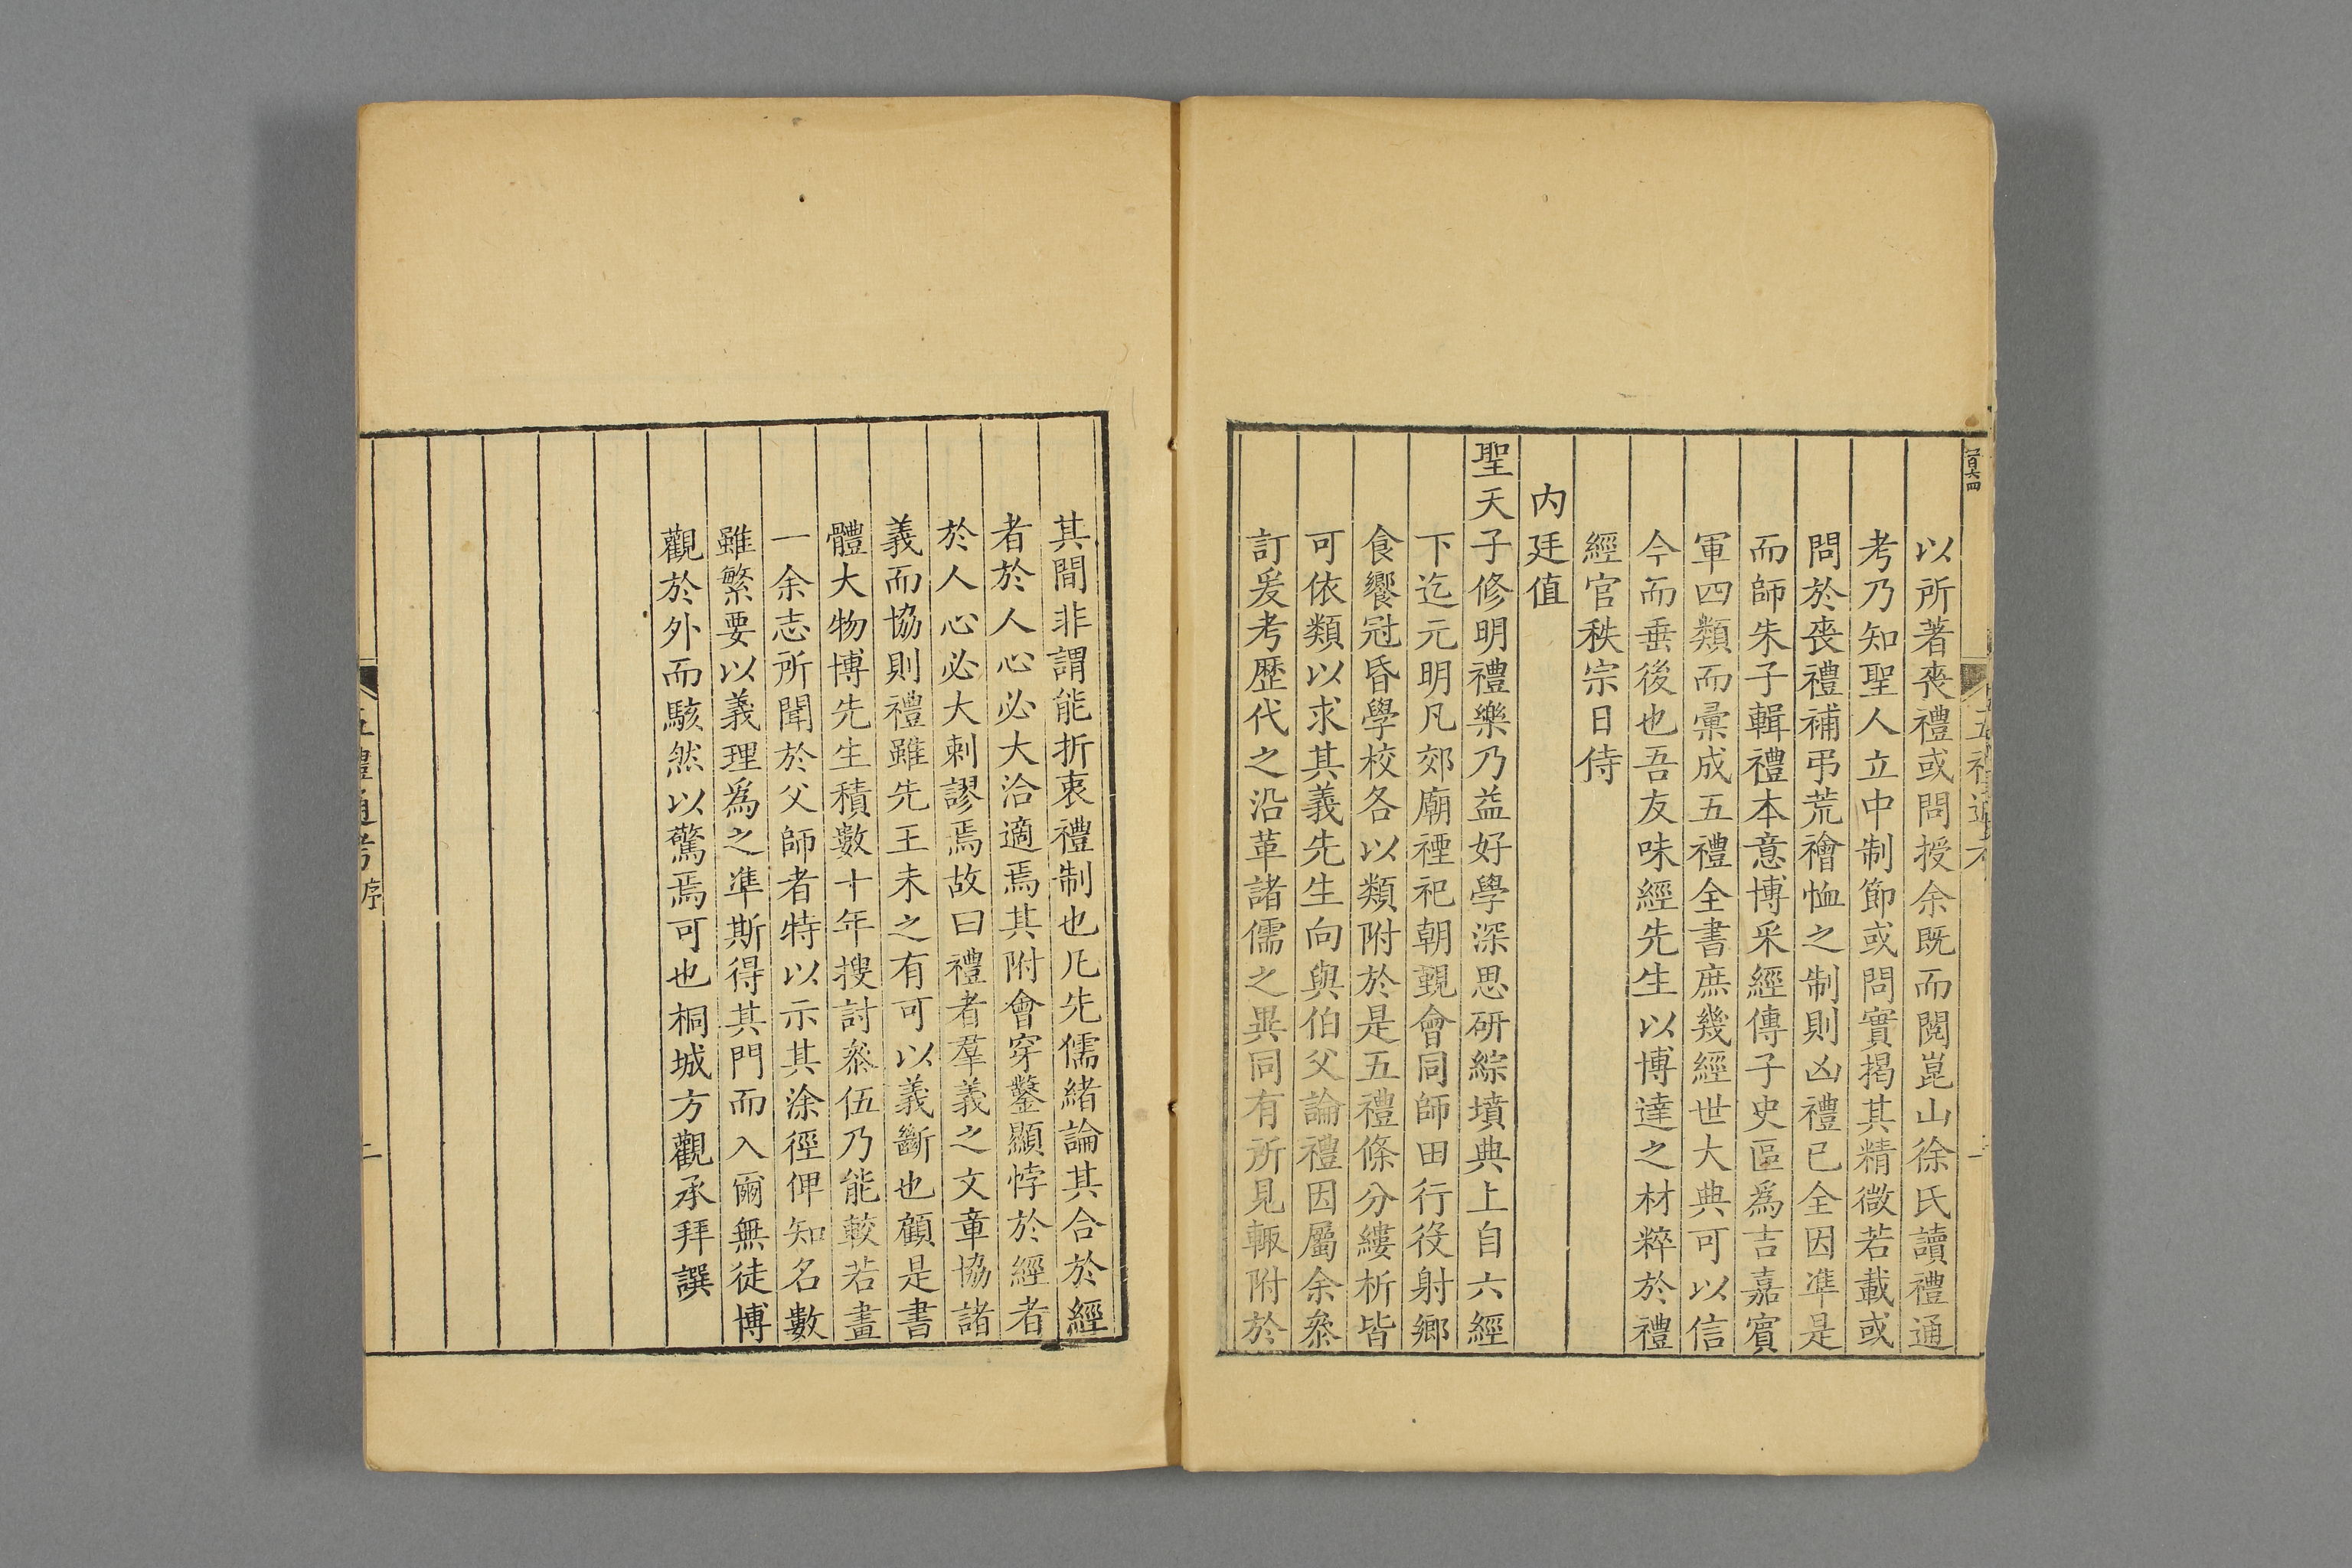 以所著喪禮或問授余既而閱崑山徐氏讀禮通
考乃知聖人立中制節或問實揭其精微若載或
問於喪禮補弔荒禬恤之制則凶禮已全因準是
而師朱子輯禮本意博采經傳子史區爲吉嘉賓
軍四類而彙成五禮全書庶幾經世大典可以信
今而垂後也吾友味經先生以博達之材粹於禮
經官秩宗日侍
內廷值
聖天子修明禮樂乃益好學深思研綜墳典上自六經
下迄元明凡郊廟禋祀朝覲會同師田行役射鄉
食饗冠昏學校各以類附於是五禮條分縷析皆
可依類以求其義先生向與伯父論禮因屬余叅
訂爰考歷代之沿革諸儒之異同有所見輙附於
其間非謂能折衷禮制也凡先儒緒論其合於經
者於人心必大洽適焉其附會穿鑿顯悖於經者
於人心必大刺謬焉故曰禮者羣義之文章協諸
義而協則禮雖先王未之有可以義斷也顧是書
體大物博先生積數十年搜討叅伍乃能較若畫
一余志所聞於父師者特以示其涂徑俾知名數
雖繁要以義理爲之準斯得其門而入爾無徒博
觀於外而駭然以驚焉可也桐城方觀承拜譔
五禮通考 序
二